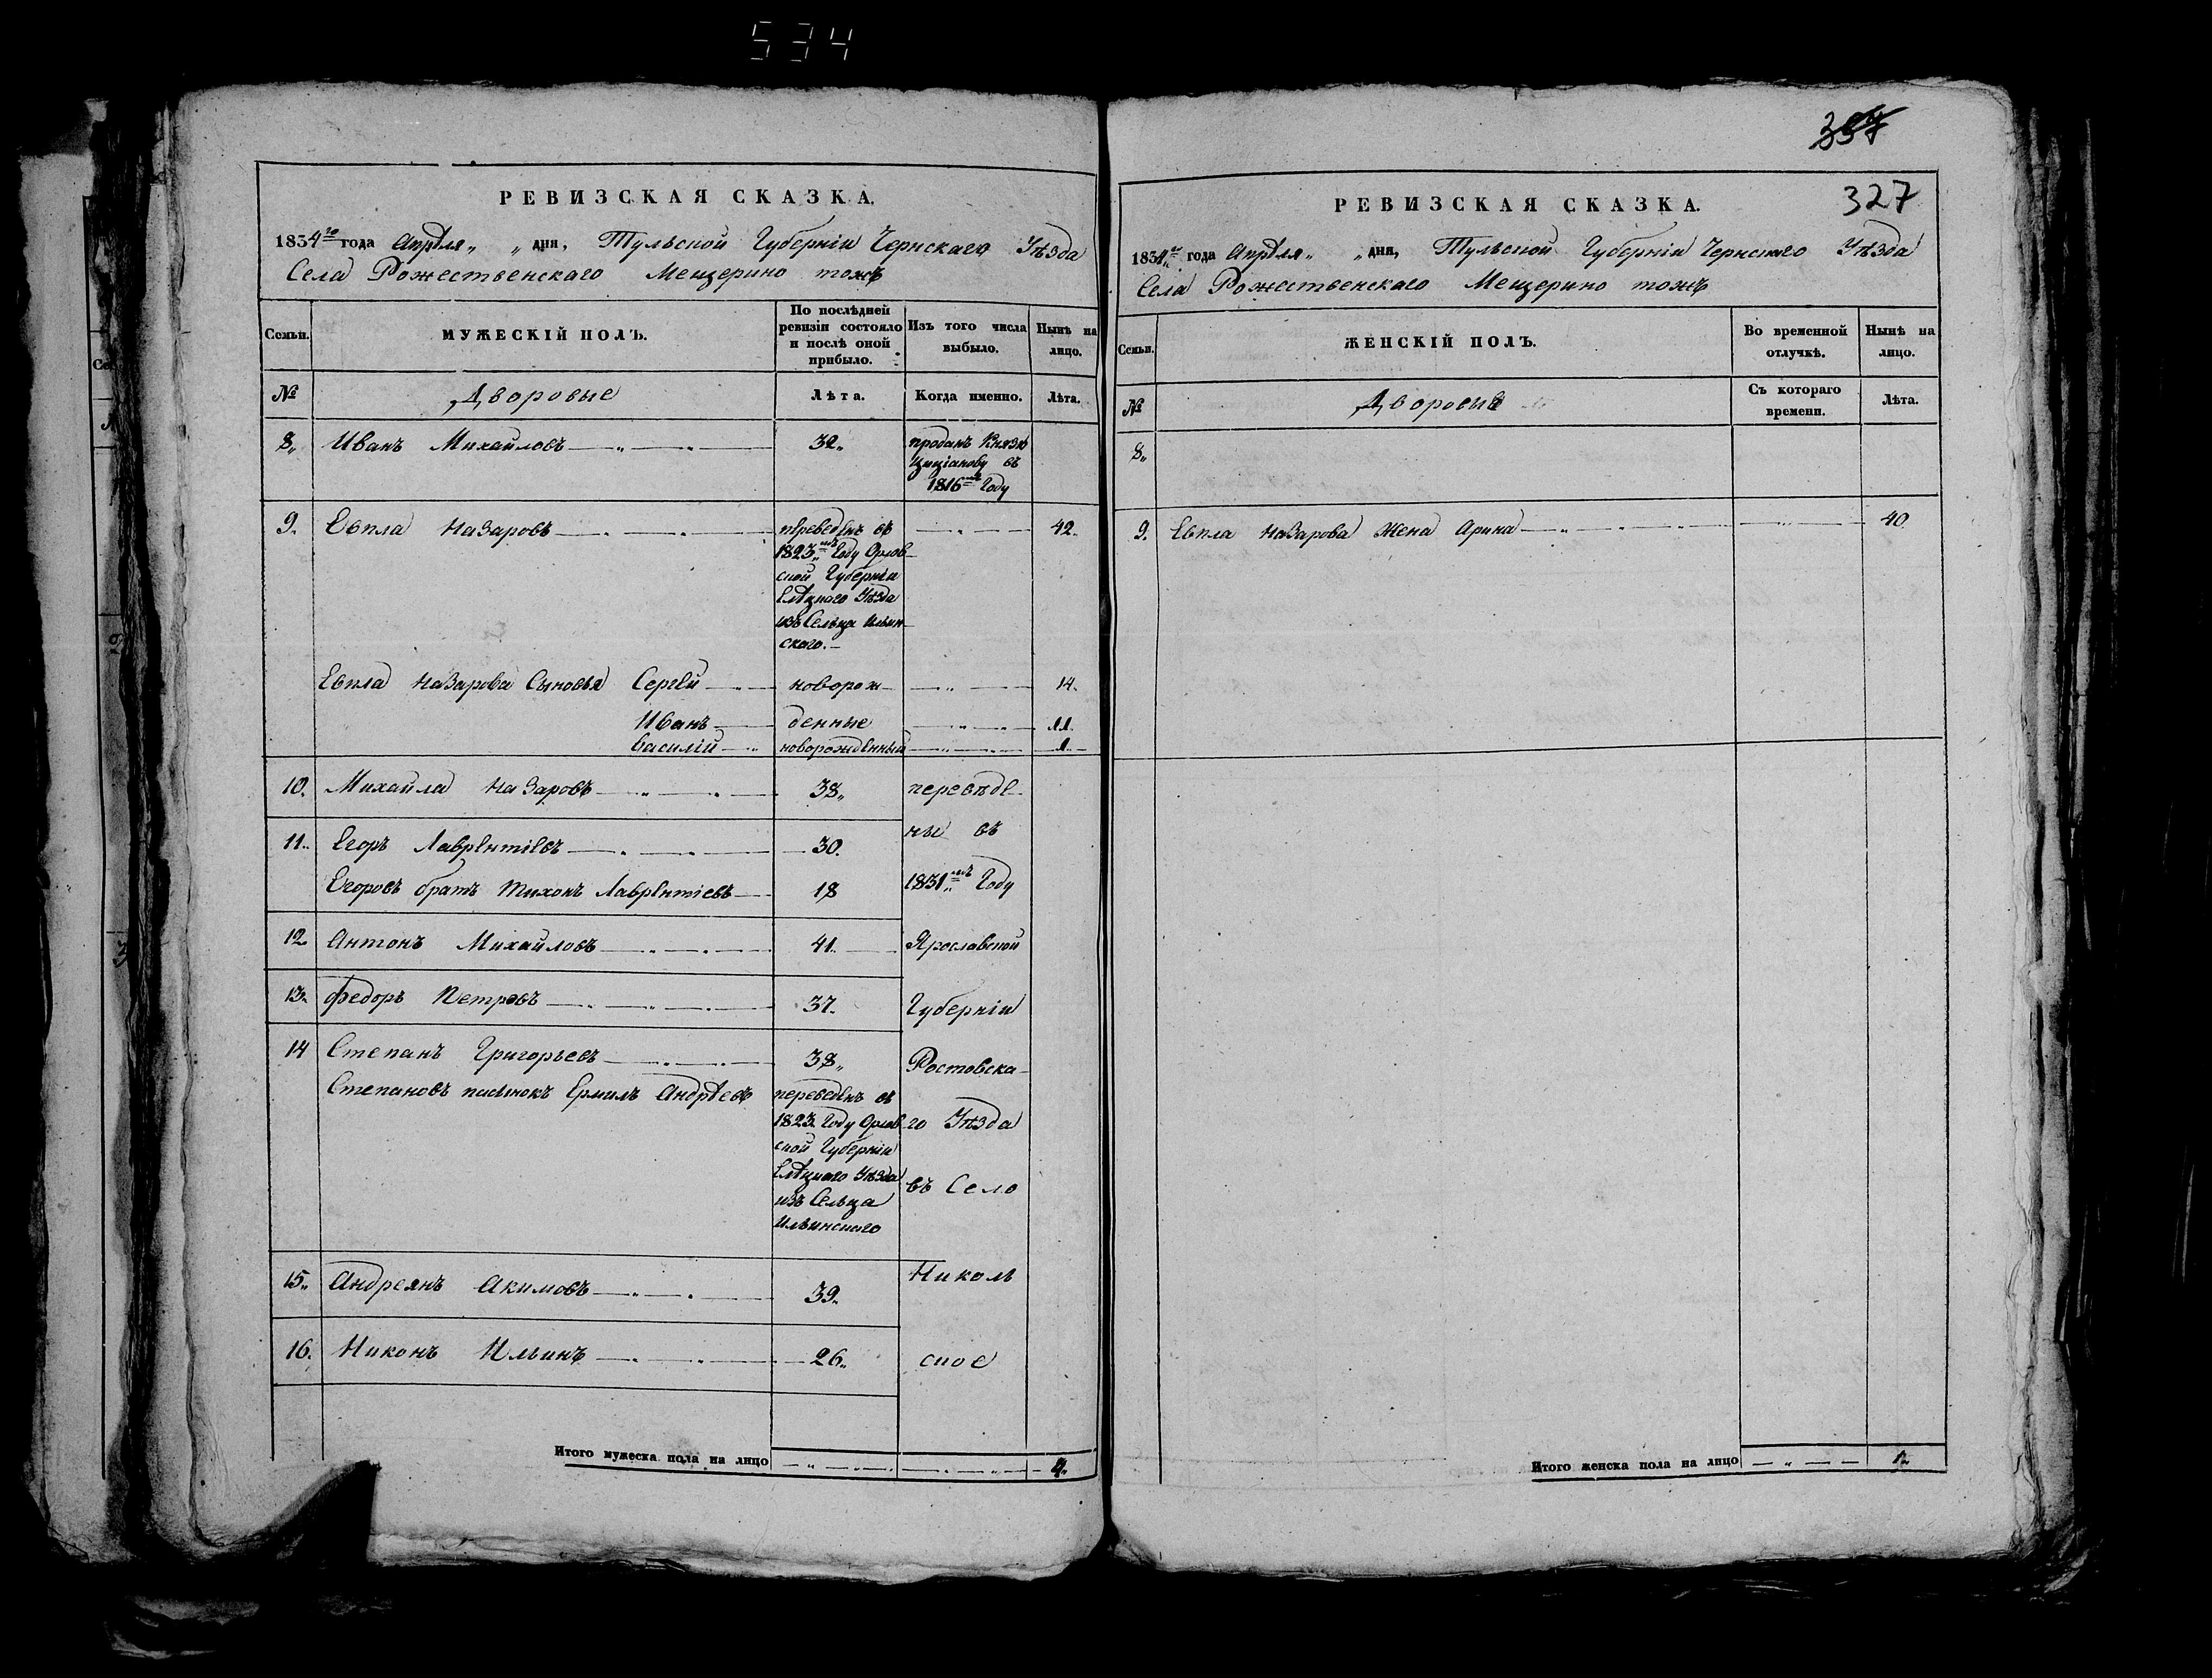 534
РЕВИЗСКАЯ СКАЗКА.
1834го года Апрѣля „ „ дня, Тульской Губерніи Чернскаго Уѣзда
Села Рожественскаго Мещерино тожъ
Семьи.
МУЖЕСКІЙ ПОЛЪ.
По послѣдней ревизіи состояло и послѣ оной прибыло.
Изъ того числа выбыло.
Нынѣ на лицо.
№
Дворовые
Лѣта.
Когда именно.
Лѣта.
8„ Иванъ Михайловъ 32„ проданъ Князю
Циціанову въ
1816мъ Году
9. Евпла Назаровъ переведенъ въ 42.
1823мъ Году Орлов-
ской Губерніи
Елѣцкаго Уѣзда
изъ Сельца Ильин-
скаго.
Евпла Назарова Сыновья Сергей новорож- 14.
Иванъ денные 11.
Василій новорожденный 1.
10. Михайла Назаровъ 38„ переведе-
ны въ
11. Егоръ Лаврентіевъ 30.
Егоровъ братъ Тихонъ Лаврентіевъ 18 1831мъ Году
12. Антонъ Михайловъ 41. Ярославской
13. Федоръ Петровъ 37. Губерніи
14 Степанъ Григорьевъ 38„ Ростовска-
Степановъ пасынокъ Ермилъ Андрѣевъ переведенъ въ
1823. Году Орлов- го Уѣзда
ской Губерніи
Елѣцкаго Уѣзда въ Село
изъ Сельца
Ильинскаго
15„ Андреянъ Акимовъ 39. Николь
16. Никонъ Ильинъ 26. ское
Итого мужеска пола на лицо 4.
327
РЕВИЗСКАЯ СКАЗКА.
1834го года Апрѣля „ „ дня, Тульской Губерніи Чернскаго Уѣзда
Села Рожественскаго Мещерино тожъ
Семьи.
ЖЕНСКІЙ ПОЛЪ.
Во временной отлучкѣ.
Нынѣ на лицо.
№
Дворовые
Съ котораго времени.
Лѣта.
8„
9. Евпла Назарова Жена Арина 40
Итого женска пола на лицо 1.